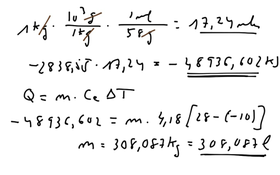 1kg · 10³g / 1kg · 1ml / 58g = 17,24 ml
-2838,55 · 17,24 = -48936,602 kJ
Q = m · Ce ΔT
-48936,602 = m · 4,18 [28-(-10)]
m = 308,087 kg = 308,087 l